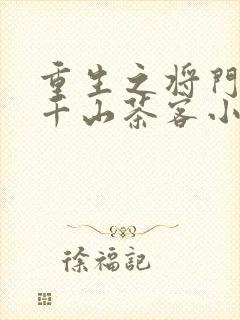 重生之将门
千山茶客小
徐福記